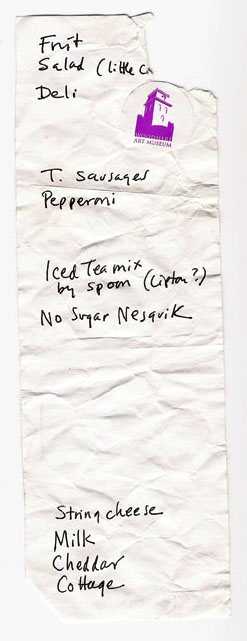 Fruit
Salad (little
Deli
ART MUSEUM
T. Sausages
Pepperoni
Iced Tea mix
by spoon (Lipton?)
No Sugar Nesquik
String cheese
Milk
Cheddar
Cottage